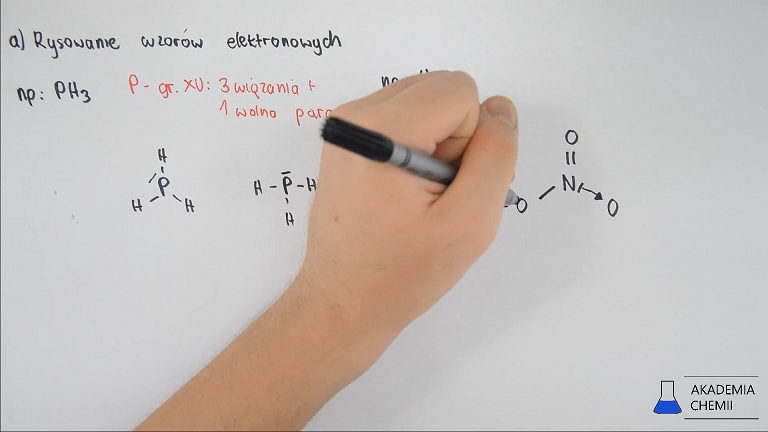 a) Rysowanie wzorów elektronowych
np: PH3
P - gr. XV: 3 wiązania +
1 wolna para
H
P
H H
H - P - H
H
O
N
O O
AKADEMIA
CHEMII